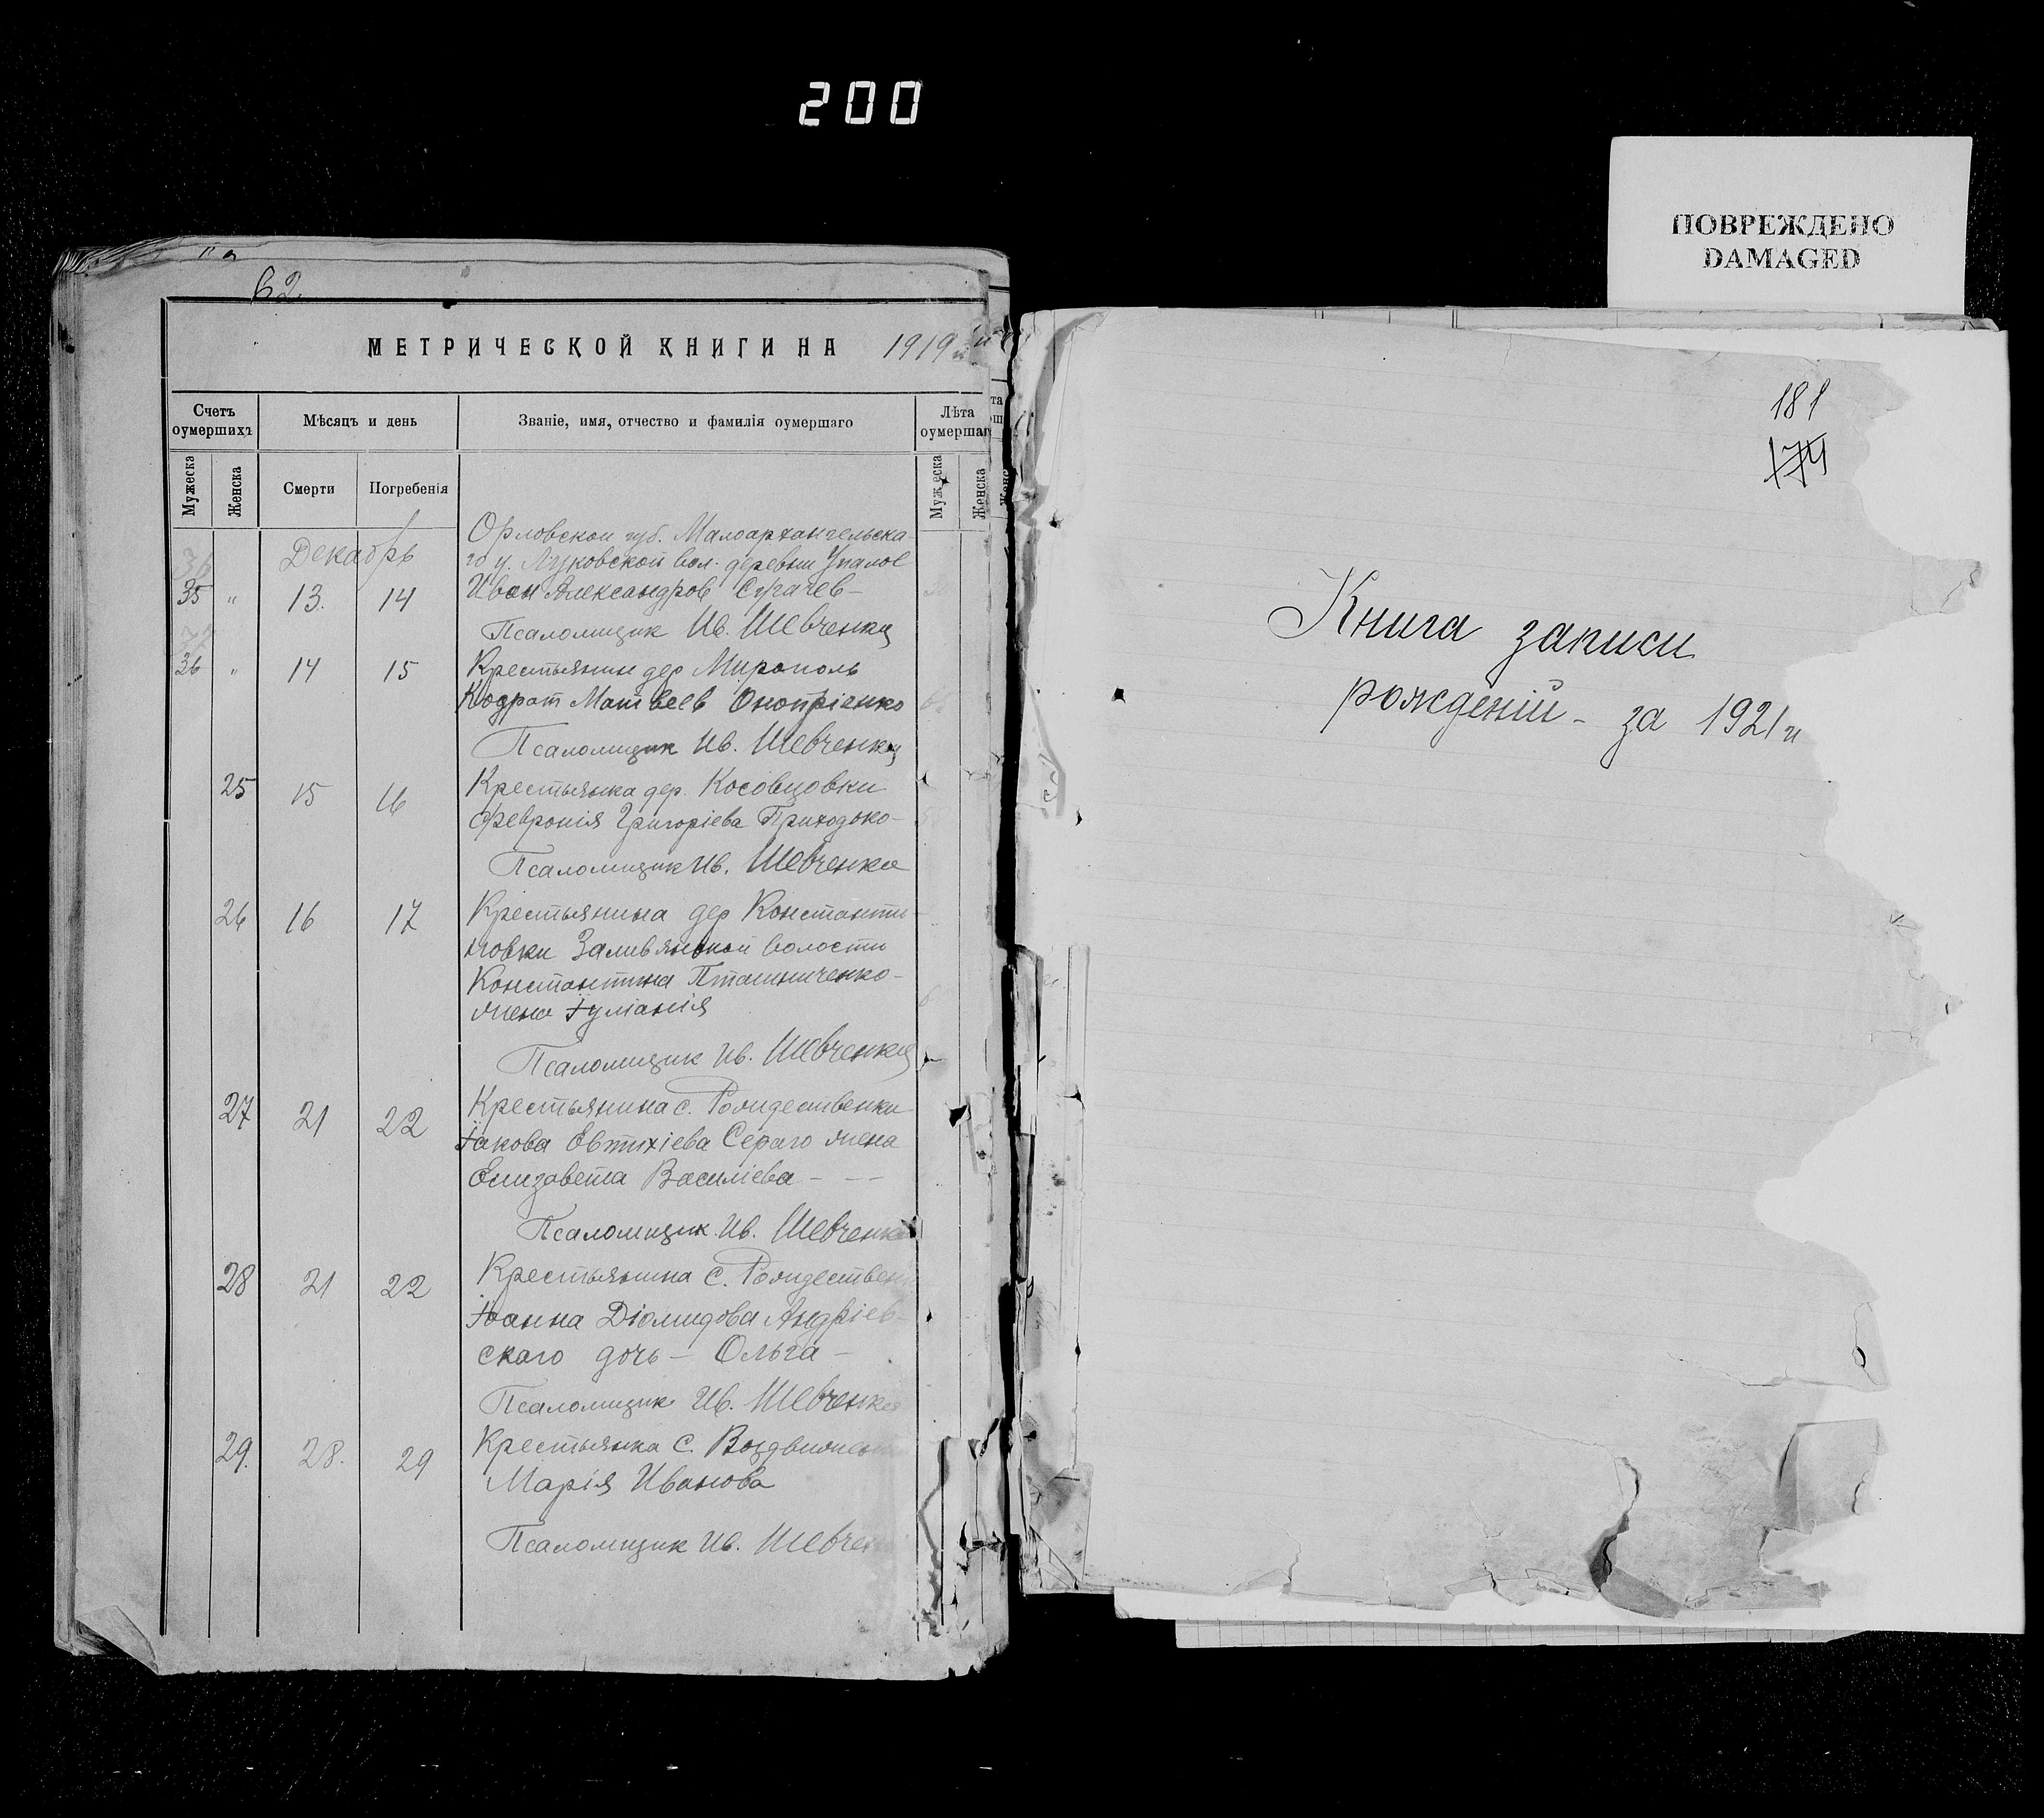 200
ПОВРЕЖДЕНО
DAMAGED
62.
МЕТРИЧЕСКОЙ КНИГИ НА 1919
Счетъ оумершихъ
Мѣсяцъ и день
Званіе, имя, отчество и фамилія оумершаго
Лѣта оумершаг
Мужеска
Женска
Смерти
Погребенія
Мужеска
Женска
Декабрь
Орловской губ. Малоархангельска-
го у. Луковской вол. деревни
35 " 13. 14 Иван Александров Сугачев -
Псаломщик Ив. Шевченко
36 " 14 15 Крестьянин дер Мирополь
Кодрат Матвеев Онопріенко
Псаломщик Ив. Шевченко
25 15 16 Крестьянка дер. Косовцовки
Февронія Григоріева Приходько -
Псаломщик Ив. Шевченко
26 16 17 Крестьянина дер Константи-
новки Заливянской волости
Константина Пташниченко -
жена Іуліанія
Псаломщик Ив. Шевченко
27 21 22 Крестьянина с. Рождественки
Іакова Евтихіева Сераго жена
Елизавета Василіева - - -
Псаломщик Ив. Шевченко
28 21 22 Крестьянина с. Рождествен
Іоанна Діомидова Андріев-
скаго дочь - Ольга -
Псаломщик Ив. Шевченко
29. 28. 29 Крестьянка с. Воздвижен
Марія Иванова
Псаломщик Ив. Шевчен
181
174
Книга записи
рожденій - за 1921 г